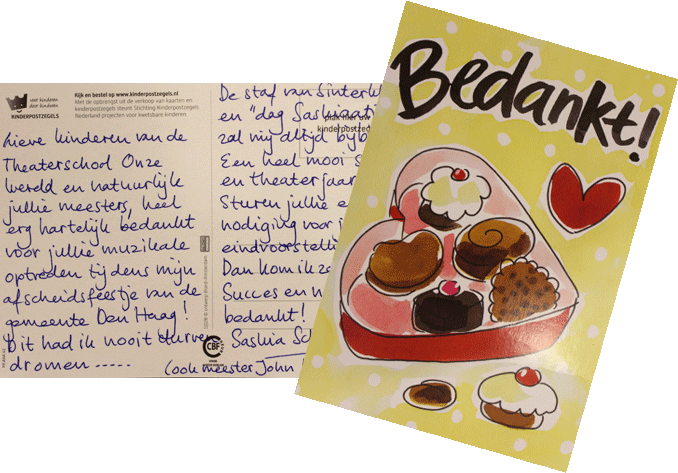 voor kinderen
door kinderen
KINDERPOSTZEGELS
Kijk en bestel op www.kinderpostzegels.nl
Met de opbrengst uit de verkoop van kaarten en
kinderpostzegels steunt Stichting Kinderpostzegels
Nederland projecten voor kwetsbare kinderen.
lieve kinderen van de
Theaterschool Onze
wereld en natuurlijk
jullie meesters, heel
erg hartelijk bedankt
voor jullie muzikale
optreden tijdens mijn
afscheidsfeestje van de
gemeente Den Haag!
Dit had ik nooit durven
dromen -----
De staf van Sinterkl
en "dag Saskia
zal mij altijd bij
plak met uw
kinderpostzeg
Een heel mooi s
en theaterjaar
Sturen jullie e
nodiging voor j
eindvoorstelli
Dan kom ik z
Succes en n
bedankt!
Saskia Sc
(ook meester John
CBF
Bedankt!